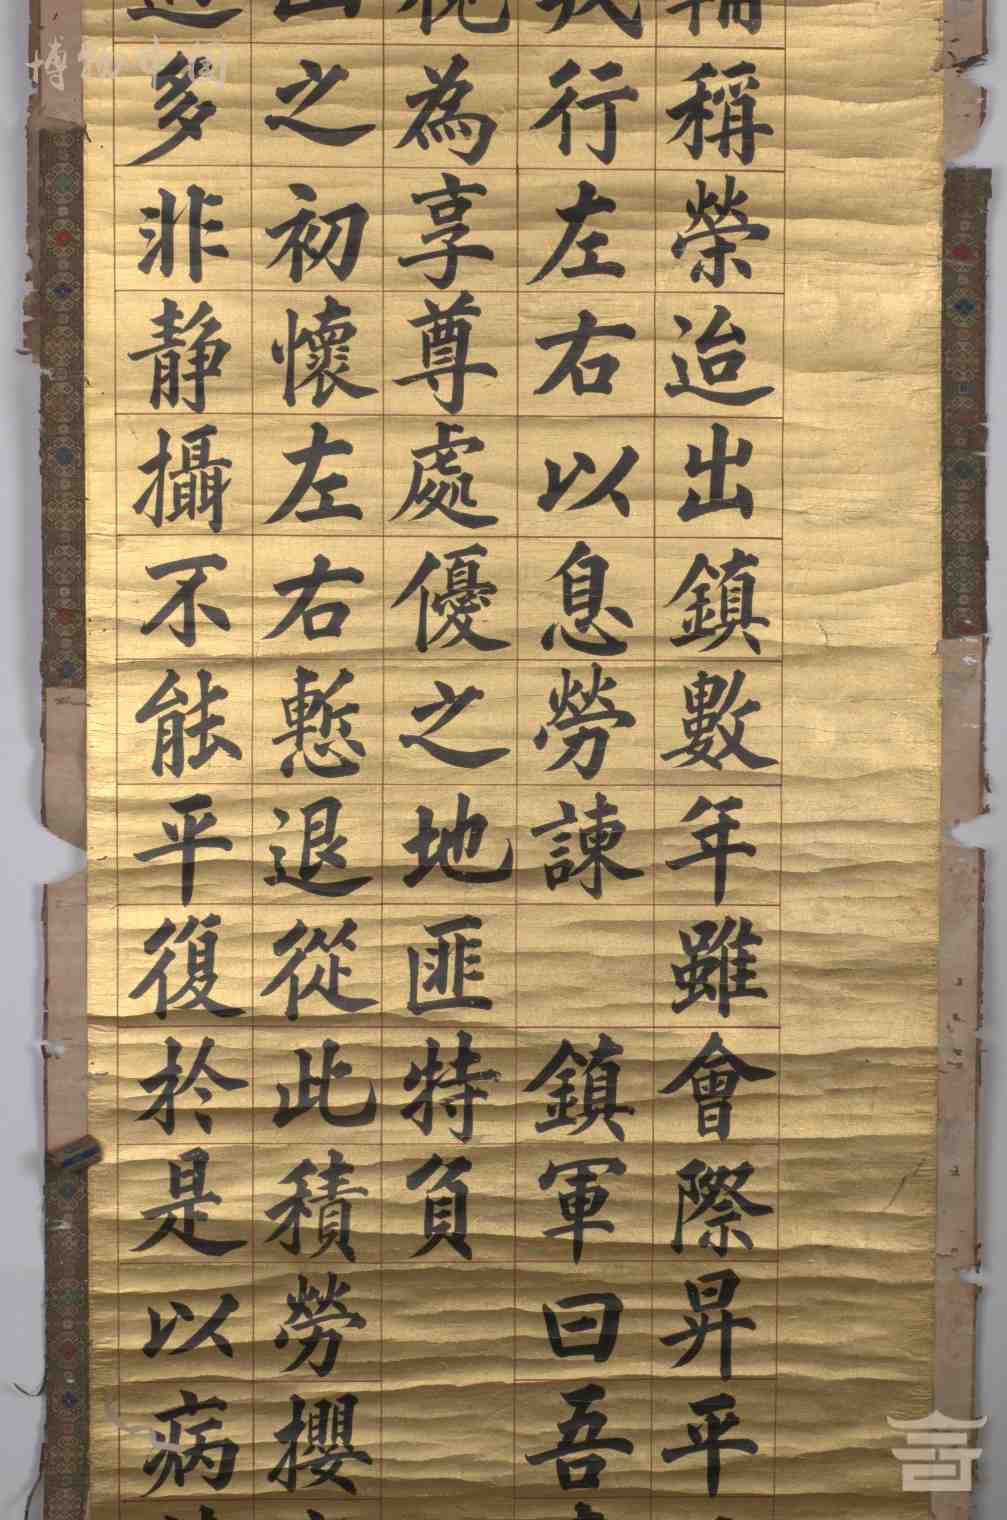 稱榮迨出鎮數年雖會際昇平
行左右以息勞諫 鎮軍曰吾
為享尊處優之地匪特負
之初懷左右慙退從此積勞攖
多非靜攝不能平復於是以病
博物中国